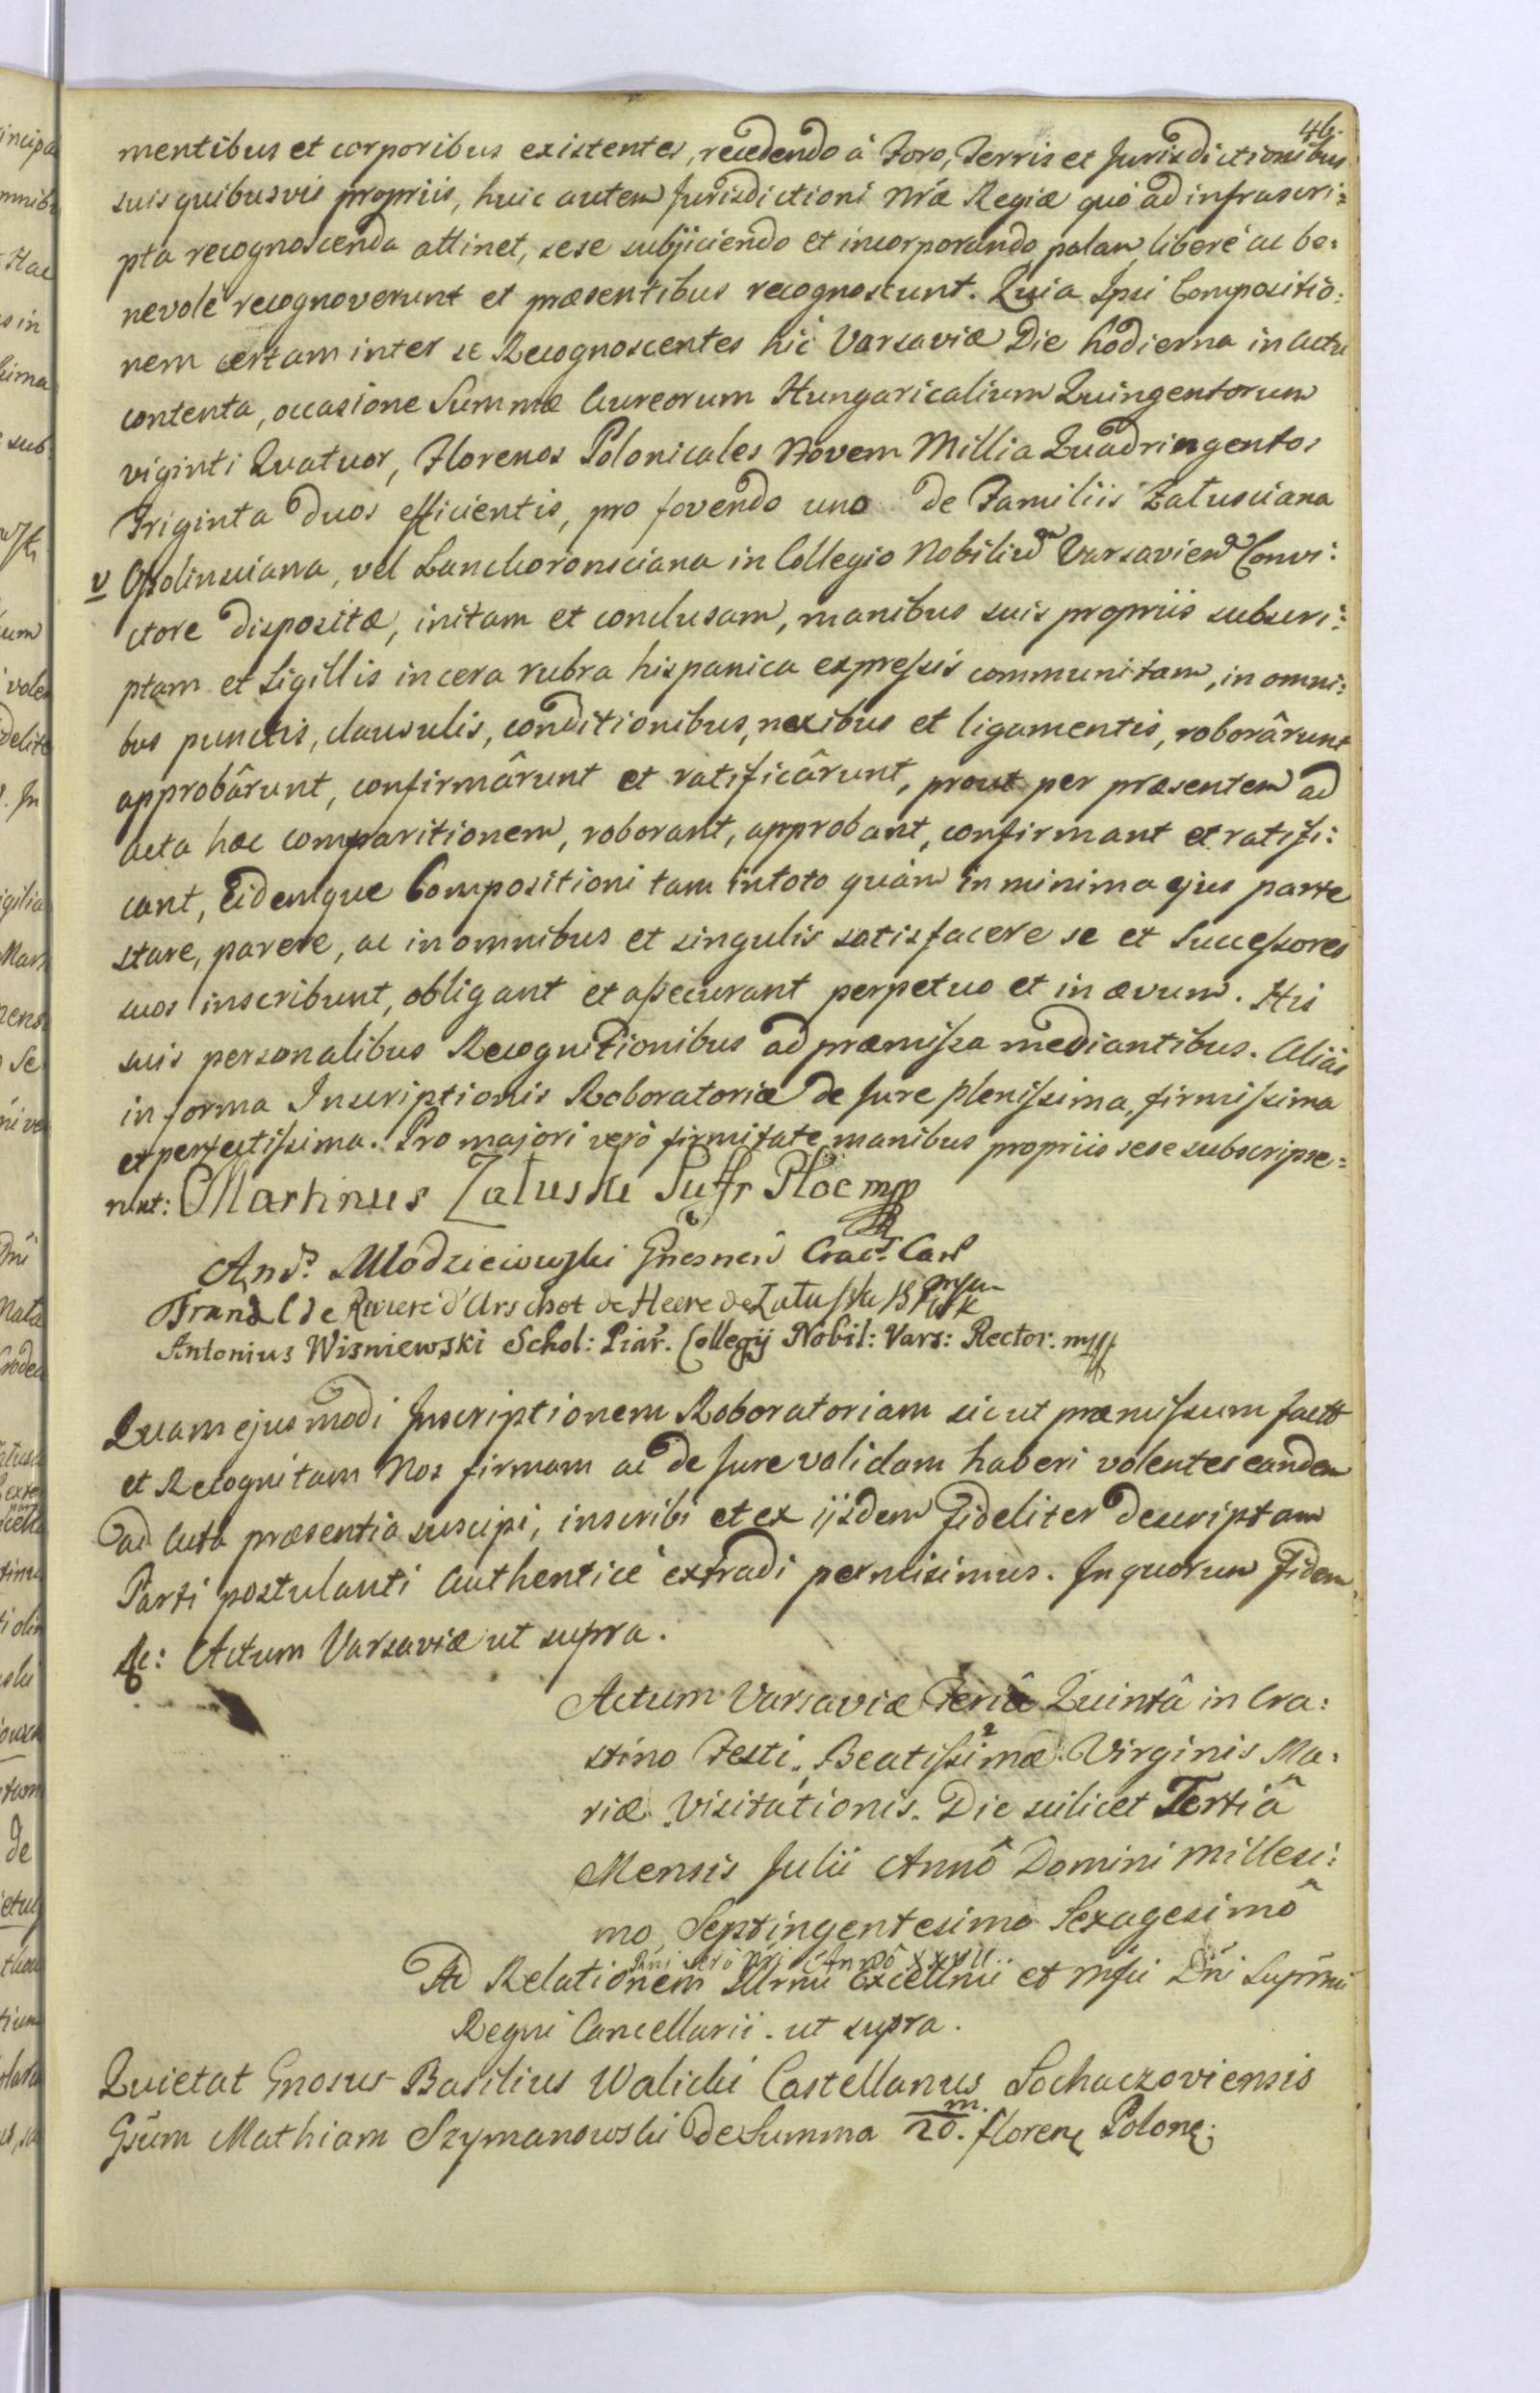 46.
mentibus et corporibus existentes, recedendo à Foro, Terris et Jurisdictionibus
suis quibusvis propriis, huic autem Jurisdictioni Nrae Regiae quò ad infrascri:
pta recognoscenda attinet, sese subjiciendo et incorporando palam liberè ac be:
nevolè recognoverunt et praesentibus recognoscunt. Quia Ipsi Compositio:
nem certam inter se Recognoscentes hic Varsaviae Die hodierna in Actu
contenta, occasione Summae Aureorum Hungaricalium Quingentorum
viginti Quatuor, Florenos Polonicales Novem Millia Quadringentos
Triginta duos efficientis, pro fovendo uno de Familiis Załusciana
v Ossolinsciana, vel Lanckoronsciana in Collegio Nobilium Varsavien Convi:
ctore dispositae, initam et conclusam, manibus suis propriis subscri:
ptam et Sigillis in cera rubra hispanica expressis communitam, in omni:
bus punctis, clausulis, conditionibus, nexibus et ligamentis, roborârunt
approbârunt, confirmârunt et ratificârunt, prout per praesentem ad
Acta haec comparitionem, roborant, approbant, confirmant et ratifi:
cant, Eidemque Compositioni tam in toto quàm in minima ejus parte
stare, parere, ac in omnibus et singulis satisfacere se et Successores
suos inscribunt, obligant et assecurant perpetuo et in aevum. His
suis personalibus Recognitionibus ad praemissa mediantibus. Aliàs
in forma Inscriptionis Roboratoriae de Jure plenissima, firmissima
et perfectissima. Pro majori verò firmitate manibus propriis sese subscripse:
runt: Martinus Załuski Suffr Ploc mpp
And. Młodzieiowski Gnesnen Crac. Can
de Riviere d'Arschot de Heere de Załuska
Antonius Wisniewski Schol: Piar. Collegij Nobil: Vars: Rector. mpp
Quam ejusmodi Inscriptionem Roboratoriam sicut praemissum factt
et Recognitam Nos firmam ac de Jure validam haberi volentes eandem
ad Acta praesentia suscipi, inscribi et ex iisdem fideliter descriptam
Parti postulanti Authenticè extradi permisimus. In quorum Fidem
&c: Actum Varsaviae ut supra.
Actum Varsaviae Feriâ Quintâ in Cra:
stino Festi Beatissimae Virginis Ma:
riae Visitationis. Die scilicet Tertiâ
Mensis Julii Annô Domini Millesi:
mo Septingentesimo Sexagesimô
Rñi verò Nri Annô XXVII.
Ad Relationem Illrmi Excellmi et Mfici Dñi Suprmi
Regni Cancellarii. ut supra.
Quietat Gnosus Basilius Walicki Castellanus Sochaczoviensis
Gsum Mathiam Szymanowski de Summa 20.m. floren Polon;